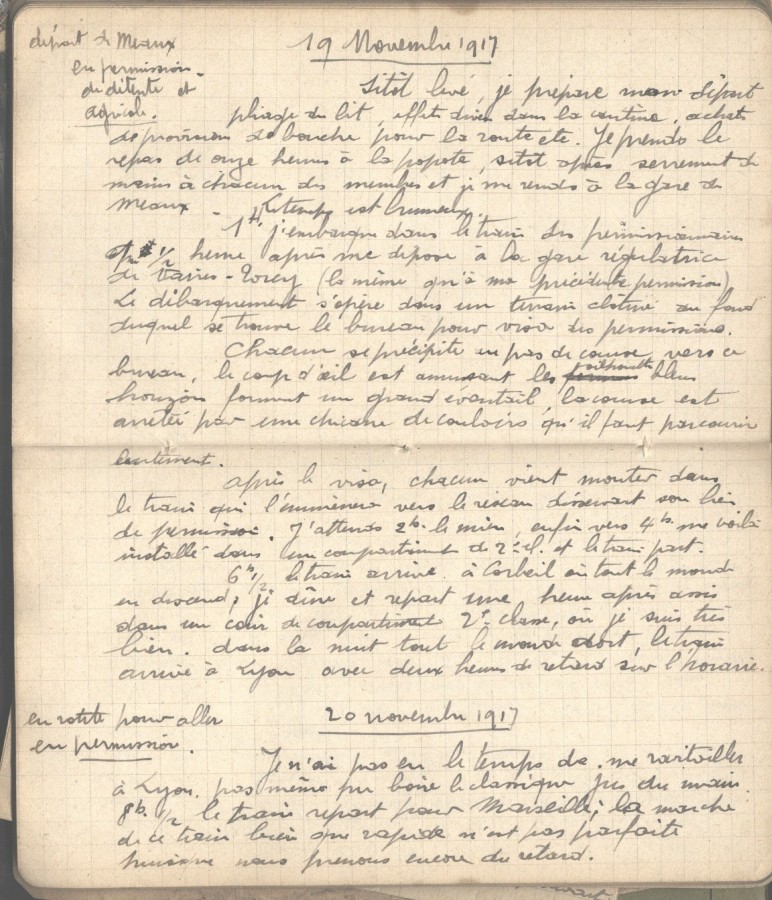 départ de Meaux
en permission
de détente et
agricole.
19 Novembre 1917
Sitôt levé, je prépare mon départ
pliage du lit, effets divers dans la cantine, achats
de provisions de bouche pour la route etc. Je prends le
repas de onze heures à la popote, sitôt après serrement de
mains à chacun des membres et je me rends à la gare de
Meaux - Le temps est brumeux.
1h j'embarque dans le train des permissionnaires
1/2 heure après me dépose à la gare régulatrice
de Vaires-Torcy (la même qu'à ma précédente permission)
Le débarquement s'opère dans un terrain clôturé au fond
duquel se trouve le bureau pour visa des permissions.
Chacun se précipite au pas de course vers ce
bureau, le coup d'œil est amusant les silhouettes bleu
horizon forment un grand éventail la course est
arrêtée par une chicane de couloirs qu'il faut parcourir
lentement.
après le visa, chacun vient monter dans
le train qui l'emmènera vers le réseau desservant son lieu
de permission. J'attends 2h. le mien, enfin vers 4h. me voilà
installé dans un compartiment de 2e cl. et le train part.
6h 1/2 le train arrive à Corbeil où tout le monde
en descend; je dîne et repart une heure après assis
dans un coin de compartiment 2e classe, où je suis très
bien. dans la nuit tout le monde dort, le train
arrive à Lyon avec deux heures de retard sur l'horaire.
en route pour aller
en permission.
20 novembre 1917
Je n'ai pas eu le temps de me ravitailler
à Lyon. pas même pu boire le classique jus du matin.
8h. 1/2 le train repart pour Marseille; la marche
de ce train bien que rapide n'est pas parfaite
puisque nous prenons encore du retard.